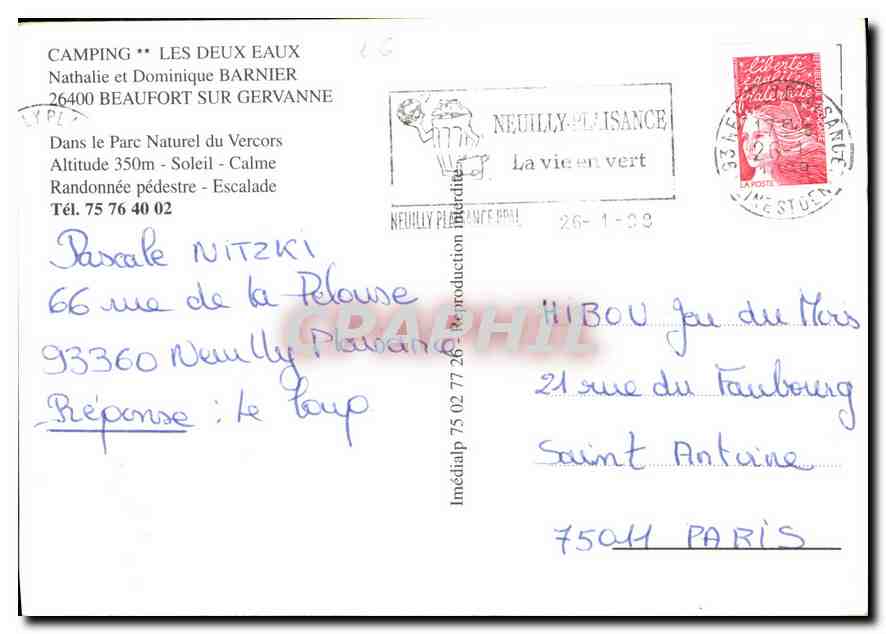 CAMPING ** LES DEUX EAUX
Nathalie et Dominique BARNIER
26400 BEAUFORT SUR GERVANNE
Dans le Parc Naturel du Vercors
Altitude 350m - Soleil - Calme
Randonnée pédestre - Escalade
Tél. 75 76 40 02
NEUILLY-PLAISANCE
La vie en vert
NEUILLY PLAISANCE PPAL 26-1-98
liberté
égalité
fraternité
LA POSTE
Pascale NITZKI
66 rue de la Pelouse
93360 Neuilly Plaisance
Réponse : Le loup
Imédialp 75 02 77 26 - Reproduction interdite
GRAPHIL
HIBOU Jeu du Mois
21 rue du Faubourg
Saint Antoine
75011 PARIS